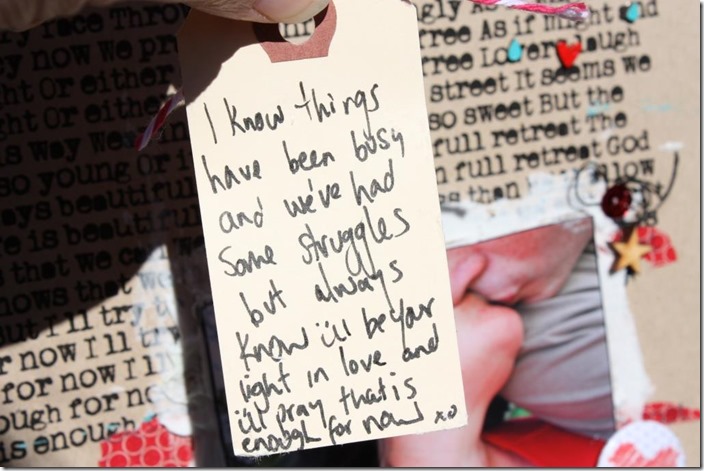 I know things
have been busy
and we've had
some struggles
but always
know i'll be your
light in love and
i'll pray that is
enough for now xo
face Throw
gly face As if might and
ey now We pr
free Lovers laugh
ght Or either
street It seems We
so sweet But the
is Way We
full retreat The
so young Or i
n full retreat God
ays beautiful
s than
low
e is beautiful
that we can
hows that we
But I'll try t
r now I'll tr
for now I'll
ough for no
is enough